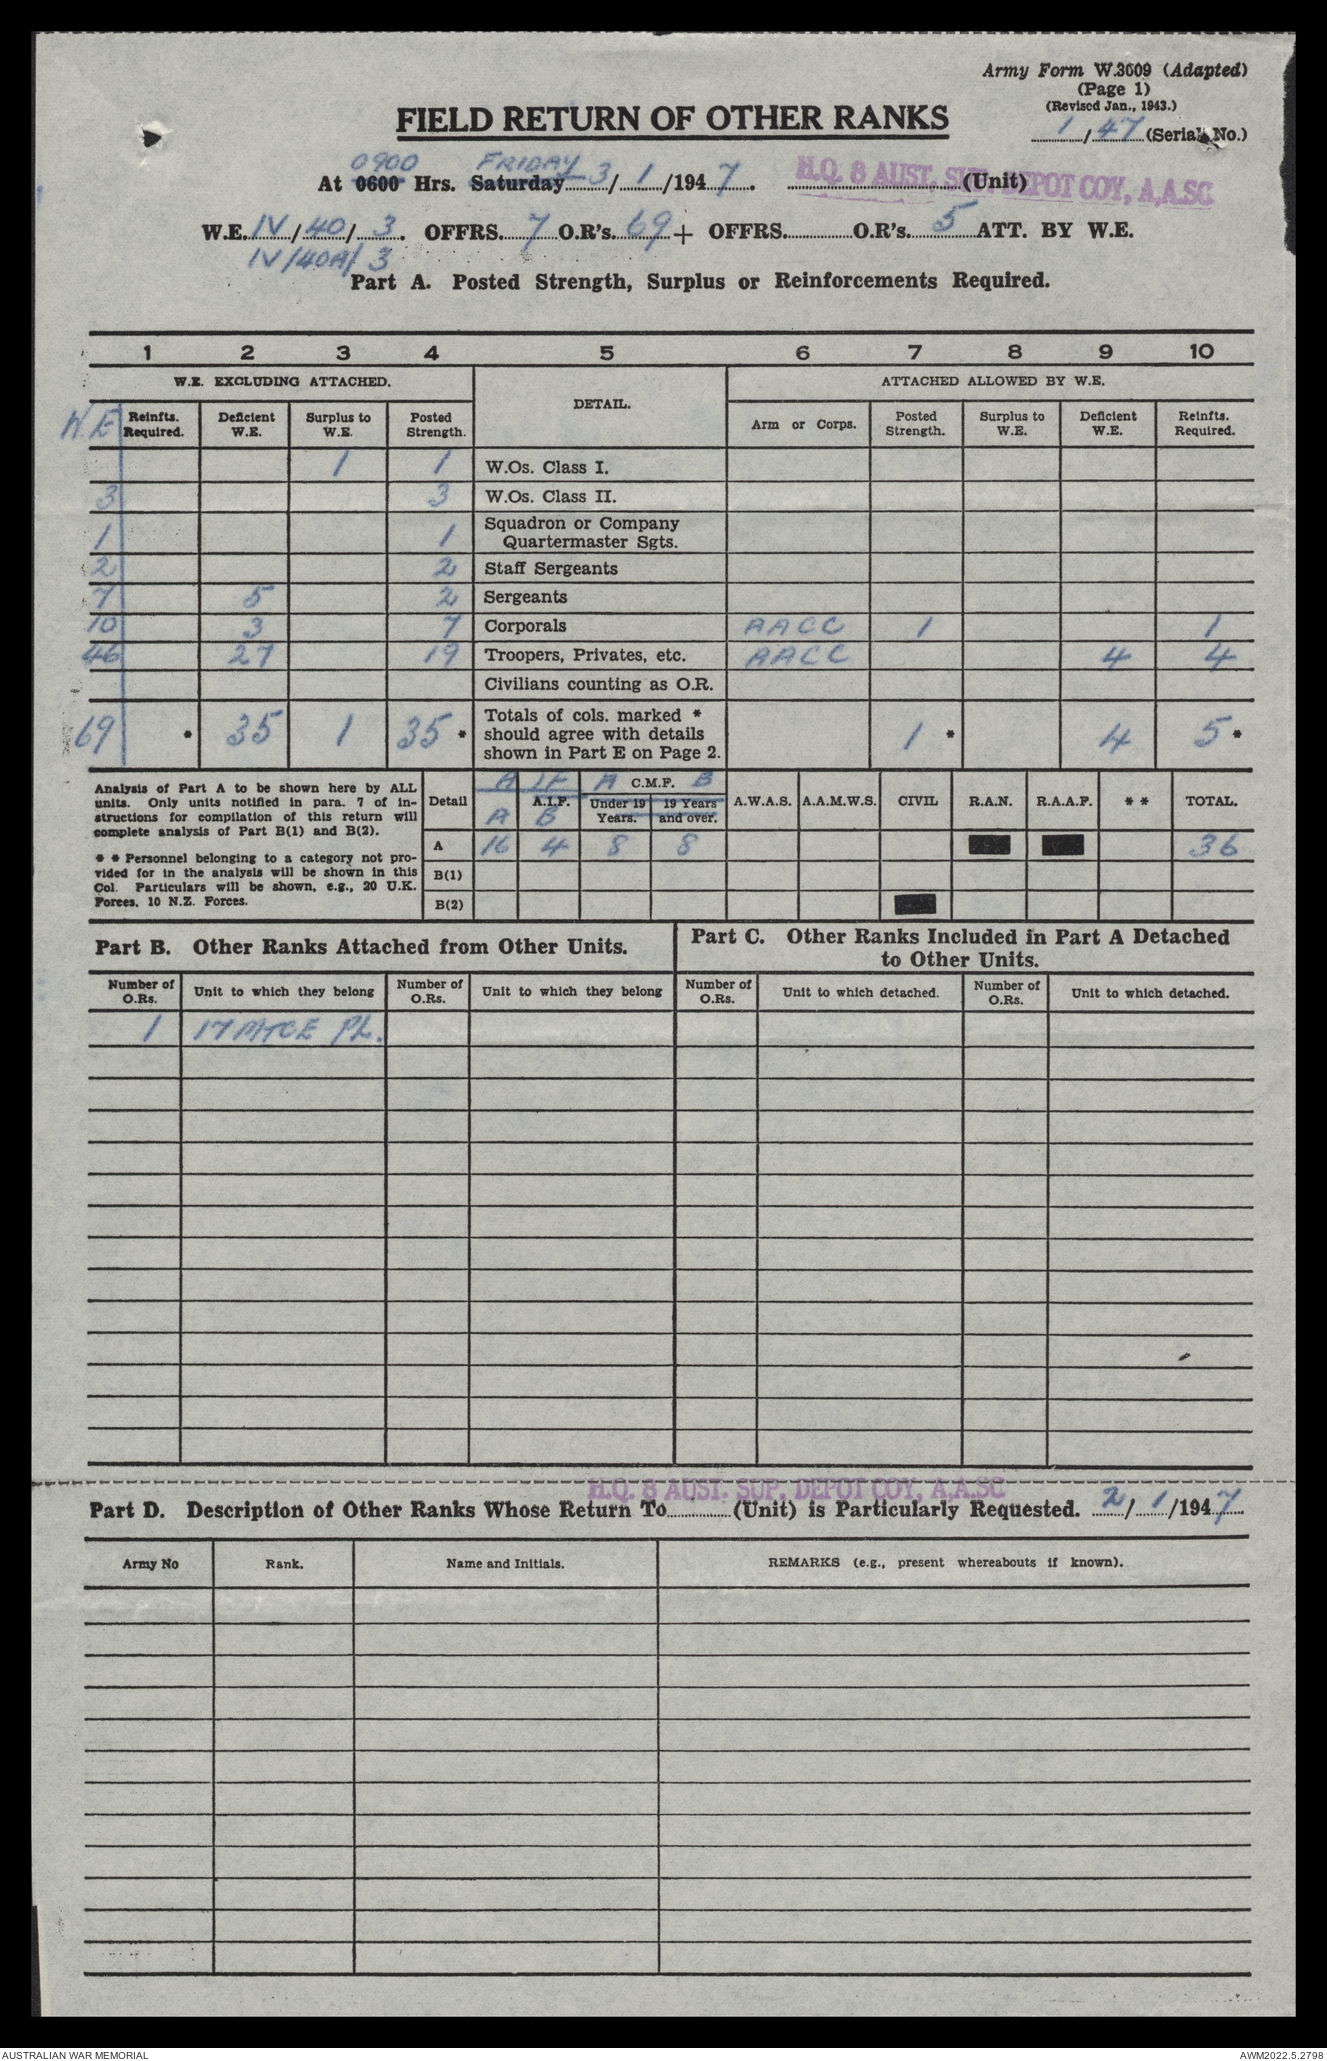 Army Form W.3009 (Adapted)
(Page 1)
(Revised Jan., 1943.)
1/47 (Serial No.)
FIELD RETURN OF OTHER RANKS
0900 FRIDAY
At 0600 Hrs. Saturday 3/1/1947. H.Q. 8 AUST. SUP. DEPOT COY, A.A.S.C. (Unit)
W.E. IV/40/3. OFFRS. 7 O.R's. 69 + OFFRS. O.R's. 5 ATT. BY W.E.
IV/40A/3
Part A. Posted Strength, Surplus or Reinforcements Required.
1 2 3 4 5 6 7 8 9 10
W.E. EXCLUDING ATTACHED. DETAIL. ATTACHED ALLOWED BY W.E.
W.E Reinfts. Required. Deficient W.E. Surplus to W.E. Posted Strength. Arm or Corps. Posted Strength. Surplus to W.E. Deficient W.E. Reinfts. Required.
1 1 W.Os. Class I.
3 3 W.Os. Class II.
1 1 Squadron or Company Quartermaster Sgts.
2 2 Staff Sergeants
7 5 2 Sergeants
10 3 7 Corporals AACC 1 1
46 27 19 Troopers, Privates, etc. AACC 4 4
Civilians counting as O.R.
69 * 35 1 35 * Totals of cols. marked * should agree with details shown in Part E on Page 2. 1 * 4 5 *
Analysis of Part A to be shown here by ALL
units. Only units notified in para. 7 of in-
structions for compilation of this return will
complete analysis of Part B(1) and B(2).
* * Personnel belonging to a category not pro-
vided for in the analysis will be shown in this
Col. Particulars will be shown, e.g., 20 U.K.
Forces, 10 N.Z. Forces.
A IF A C.M.F. B
Detail A.I.F. Under 19 Years. 19 Years and over. A.W.A.S. A.A.M.W.S. CIVIL R.A.N. R.A.A.F. * * TOTAL.
A B
A 16 4 8 8 36
B(1)
B(2)
Part B. Other Ranks Attached from Other Units.
Part C. Other Ranks Included in Part A Detached
to Other Units.
Number of O.Rs. Unit to which they belong Number of O.Rs. Unit to which they belong Number of O.Rs. Unit to which detached. Number of O.Rs. Unit to which detached.
1 17 MTCE PL.
H.Q. 8 AUST. SUP. DEPOT COY, A.A.S.C
Part D. Description of Other Ranks Whose Return To (Unit) is Particularly Requested. 2/1/1947
Army No Rank. Name and Initials. REMARKS (e.g., present whereabouts if known).
AUSTRALIAN WAR MEMORIAL AWM2022.5.2798